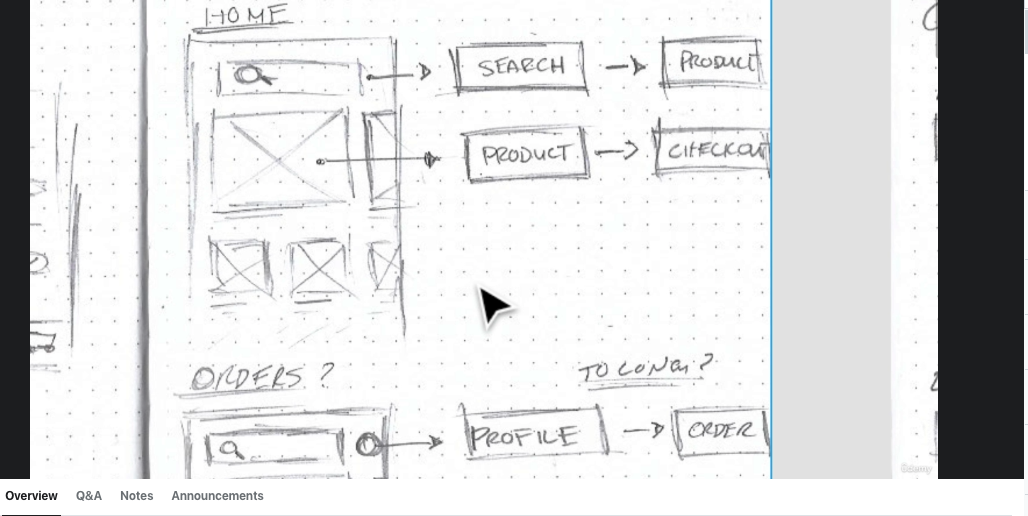 HOME
SEARCH
PRODUCT
PRODUCT
CHECKOUT
ORDERS ?
TO LONG ?
PROFILE
ORDER
Udemy
Overview Q&A Notes Announcements